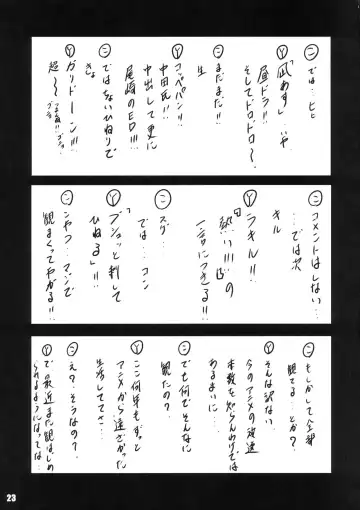 ㋥ では…ヒヒ
Ⓨ 「凪あす」…いや
昼ドラ!!
そしてドロドロ〜。
㋥ まだまだ!!
生
Ⓨ コッペパン!!
中田氏!!
中出しして更に
尾崎のED!!!
㋥ ではちないひねりで
Ⓨ ガリドーン!!!
超〜〜
㋥ コメントはしない…
…では次
キル
Ⓨ ラキル!!
熱い!!!の
一言につきる!!
㋥ スゲ…
では…コン
Ⓨ 「ブシュッと刺して
ひねる」!!
㋥ こやつ…マジで
観まくってやがる!!
㋥ もしかして全部
観てる…とか?
Ⓨ そんな訳ない
今のアニメの放送
本数を知らんわけでは
あるまいに…
㋥ でも何でそんなに
観たの?
Ⓨ ここ何年もずっと
アニメから遠ざかった
生活してて…
㋥ え?そうなの?
Ⓨ で最近また観はじめ
られるようになっては…
23